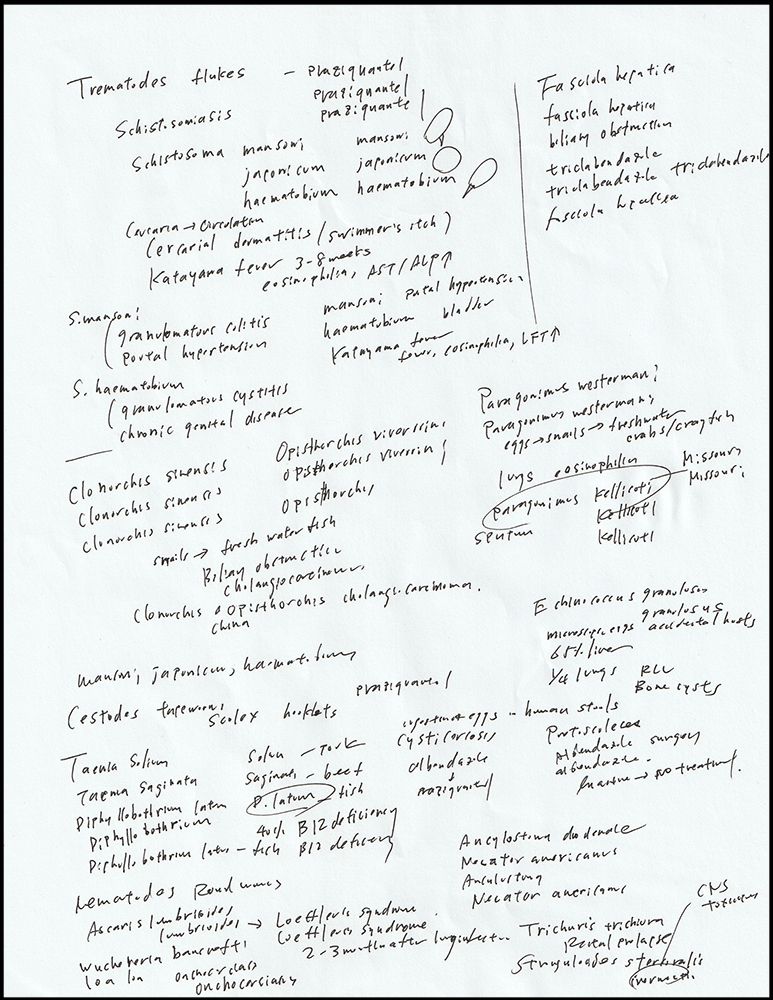 Trematodes flukes - praziquantel
praziquantel
praziquante
Schistosomiasis
Schistosoma mansoni mansoni
japonicum japonicum
haematobium haematobium
Cercaria → circulation
Cercarial dermatitis (swimmer's itch)
Katayama fever 3-8 weeks
eosinophilia, AST/ALP↑
S. mansoni
granulomatous colitis
portal hypertension
mansoni portal hypertension
haematobium bladder
Katayama fever
fever, eosinophilia, LFT↑
S. haematobium
granulomatous cystitis
chronic genital disease
Fasciola hepatica
fasciola hepatica
biliary obstruction
triclabendazole
triclabendazole triclabendazole
fasciola hepatica
Clonorchis sinensis Opisthorchis viverrini
Clonorchis sinensis Opisthorchis viverrini
Clonorchis sinensis Opisthorchis
snails → fresh water fish
Biliary obstruction
cholangiocarcinoma
Clonorchis Opisthorchis cholangiocarcinoma.
China
Paragonimus westermani
Paragonimus westermani
eggs → snails → freshwater
crabs/crayfish
lungs eosinophilia Missouri
paragonimus kellicoti Missouri
Kellicoti
sputum Kellicoti
mansoni, japonicum, haematobium
Cestodes tapeworms praziquantel
Scolex hooklets
Taenia Solium Solium - Pork
Taenia Saginata Saginata - beef
Diphyllobothrium latum D. latum - fish
Diphyllobothrium B12 deficiency
Diphyllobothrium latum - fish B12 deficiency
ingestion of eggs - human stools
cysticercosis
albendazole
+
praziquantel
Echinococcus granulosus
granulosus
microscopic eggs accidental hosts
65% liver
1/4 lungs RLL
Bone cysts
Protoscoleces
Albendazole surgery
albendazole.
Inactive → no treatment.
Nematodes Roundworms
Ascaris lumbricoides
lumbricoides → Loeffler's syndrome
Loeffler's syndrome.
Wuchereria bancrofti 2-3 months after
loa loa onchocerciasis
onchocerciasis
Ancylostoma duodenale
Necator americanus
Ancylostoma
Necator americanus
Trichuris trichiura
Rectal prolapse
Strongyloides stercoralis
CNS